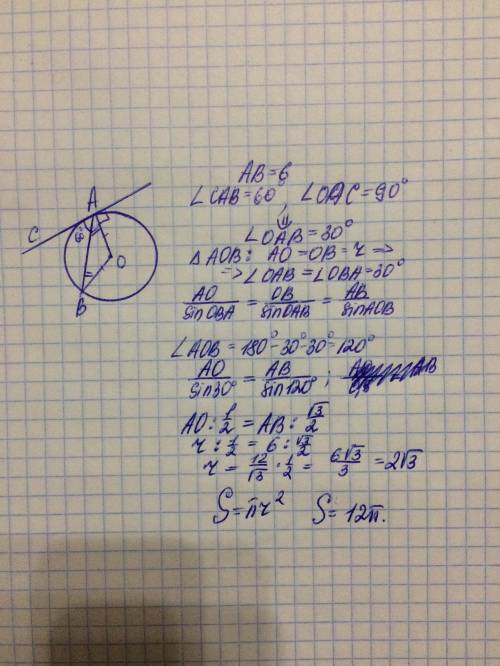 AB=6
∠CAB=60°, ∠OAC=90°
⇓
∠OAB=30°
△AOB: AO=OB=r =>
=> ∠OAB=∠OBA=30°
AO/sinOBA = OB/sinOAB = AB/sinAOB
∠AOB=180°-30°-30°=120°
AO/sin30° = AB/sin120° ;
AO : 1/2 = AB : √3/2
r : 1/2 = 6 : √3/2
r = 12/√3 · 1/2 = 6√3/3 = 2√3
S=πr² S=12π.
A
C
60°
O
B